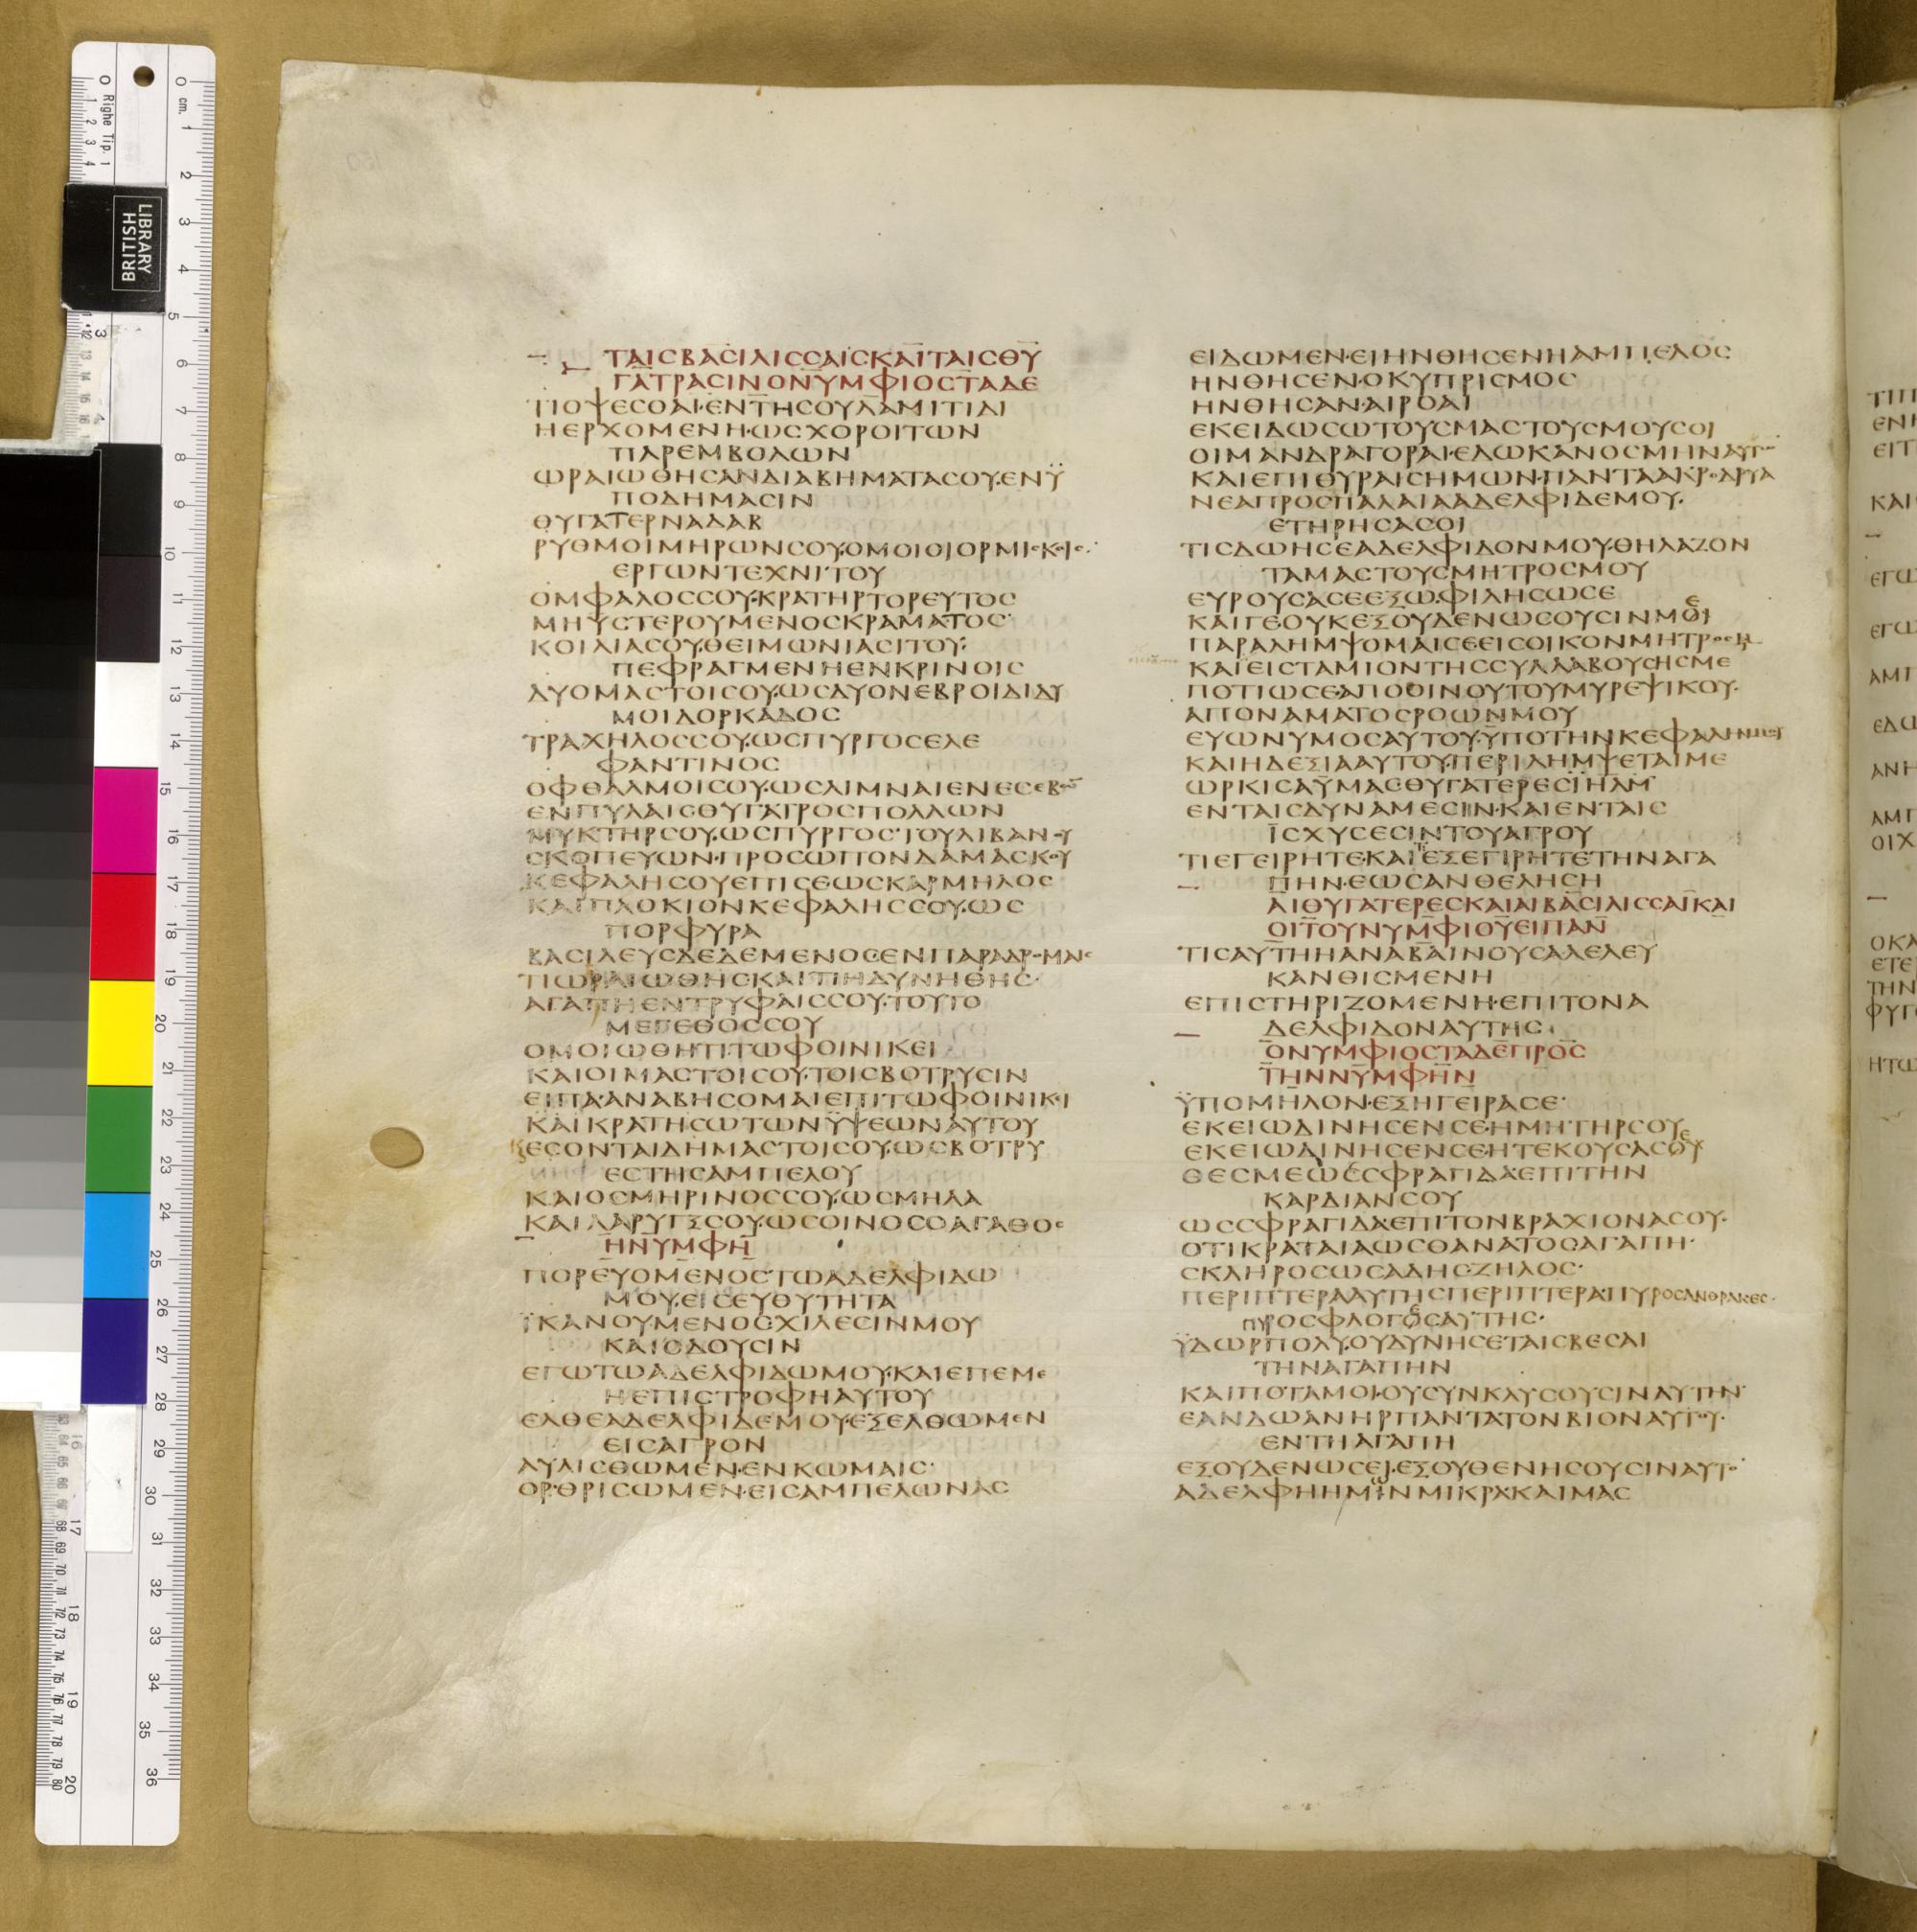 ΤΑΙCΒΑCΙΛΙCCΑΙCΚΑΙΤΑΙCΘΥ
ΓΑΤΡΑCΙΝΟΝΥΜΦΙΟCΤΑΔΕ
ΤΙΟΨΕCΘΑΙ·ΕΝΤΗCΟΥΛΑΜΙΤΙΔΙ
ΗΕΡΧΟΜΕΝΗ·ΩCΧΟΡΟΙΤΩΝ
ΠΑΡΕΜΒΟΛΩΝ
ΩΡΑΙΩΘΗCΑΝΔΙΑΒΗΜΑΤΑCΟΥ·ΕΝΫ
ΠΟΔΗΜΑCΙΝ
ΘΥΓΑΤΕΡΝΑΔΑΒ
ΡΥΘΜΟΙΜΗΡΩΝCΟΥ·ΟΜΟΙΟΙΟΡΜΙCΚΟΙC·
ΕΡΓΩΝΤΕΧΝΙΤΟΥ
ΟΜΦΑΛΟCCΟΥ·ΚΡΑΤΗΡΤΟΡΕΥΤΟC
ΜΗΥCΤΕΡΟΥΜΕΝΟCΚΡΑΜΑΤΟC
ΚΟΙΛΙΑCΟΥ·ΘΕΙΜΩΝΙΑCΙΤΟΥ·
ΠΕΦΡΑΓΜΕΝΗΕΝΚΡΙΝΟΙC
ΔΥΟΜΑCΤΟΙCΟΥ·ΩCΔΥΟΝΕΒΡΟΙΔΙΔΥ
ΜΟΙΔΟΡΚΑΔΟC
ΤΡΑΧΗΛΟCCΟΥ·ΩCΠΥΡΓΟCΕΛΕ
ΦΑΝΤΙΝΟC
ΟΦΘΑΛΜΟΙCΟΥ·ΩCΛΙΜΝΑΙΕΝΕCΕΒΩ̅
ΕΝΠΥΛΑΙCΘΥΓΑΤΡΟCΠΟΛΛΩΝ
ΜΥΚΤΗΡCΟΥ·ΩCΠΥΡΓΟC·ΤΟΥΛΙΒΑΝΟΥ
CΚΟΠΕΥΩΝ·ΠΡΟCΩΠΟΝΔΑΜΑCΚΟΥ
ΚΕΦΑΛΗCΟΥΕΠΙCΕΩCΚΑΡΜΗΛΟC
ΚΑΙΠΛΟΚΙΟΝΚΕΦΑΛΗCCΟΥ·ΩC
ΠΟΡΦΥΡΑ
ΒΑCΙΛΕΥCΔΕΔΕΜΕΝΟCΕΝΠΑΡΑΔΡΟΜΑΙC
ΤΙΩΡΑΙΩΘΗCΚΑΙΤΙΗΔΥΝΗΘΗC·
ΑΓΑΠΗΕΝΤΡΥΦΑΙCCΟΥ·ΤΟΥΤΟ
ΜΕΓΕΘΟCCΟΥ
ΟΜΟΙΩΘΗΤΙΤΩΦΟΙΝΙΚΕΙ
ΚΑΙΟΙΜΑCΤΟΙCΟΥ·ΤΟΙCΒΟΤΡΥCΙΝ
ΕΙΠΑ·ΑΝΑΒΗCΟΜΑΙΕΠΙΤΩΦΟΙΝΙΚΙ
ΚΑΙΚΡΑΤΗCΩΤΩΝΫΨΕΩΝΑΥΤΟΥ
ΕCΟΝΤΑΙΔΗΜΑCΤΟΙCΟΥ·ΩCΒΟΤΡΥ
ΕCΤΗCΑΜΠΕΛΟΥ
ΚΑΙΟCΜΗΡΙΝΟCCΟΥ·ΩCΜΗΛΑ
ΚΑΙΛΑΡΥΓΞCΟΥ·ΩCΟΙΝΟCΟΑΓΑΘΟC
ΗΝΥΜΦΗ
ΠΟΡΕΥΟΜΕΝΟC·ΤΩΑΔΕΛΦΙΔΩ
ΜΟΥ·ΕΙCΕΥΘΥΤΗΤΑ
ΪΚΑΝΟΥΜΕΝΟCΧΙΛΕCΙΝΜΟΥ
ΚΑΙΟΔΟΥCΙΝ
ΕΓΩΤΩΑΔΕΛΦΙΔΩΜΟΥ·ΚΑΙΕΠΕΜΕ
ΗΕΠΙCΤΡΟΦΗΑΥΤΟΥ
ΕΛΘΕΑΔΕΛΦΙΔΕΜΟΥ·ΕΞΕΛΘΩΜΕΝ
ΕΙCΑΓΡΟΝ
ΑΥΛΙCΘΩΜΕΝ·ΕΝΚΩΜΑΙC·
ΟΡΘΡΙCΩΜΕΝ·ΕΙCΑΜΠΕΛΩΝΑC
ΕΙΔΩΜΕΝ·ΕΙΗΝΘΗCΕΝΗΑΜΠΕΛΟC
ΗΝΘΗCΕΝ·ΟΚΥΠΡΙCΜΟC
ΗΝΘΗCΑΝ·ΑΙΡΟΑΙ
ΕΚΕΙΔΩCΩΤΟΥCΜΑCΤΟΥCΜΟΥCΟΙ
ΟΙΜΑΝΔΡΑΓΟΡΑΙ·ΕΔΩΚΑΝΟCΜΗΝΑΥΤ
ΚΑΙΕΠΙΘΥΡΑΙCΗΜΩΝ·ΠΑΝΤΑΑΚΡΟΔΡΥΑ
ΝΕΑΠΡΟCΠΑΛΑΙΑΑΔΕΛΦΙΔΕΜΟΥ·
ΕΤΗΡΗCΑCΟΙ
ΤΙCΔΩΗCΕΑΔΕΛΦΙΔΟΝΜΟΥ·ΘΗΛΑΖΟΝ
ΤΑΜΑCΤΟΥCΜΗΤΡΟCΜΟΥ
ΕΥΡΟΥCΑCΕΕΞΩ·ΦΙΛΗCΩCΕ
ΚΑΙΓΕΟΥΚΕΞΟΥΔΕΝΩCΟΥCΙΝΜΟΙ
ΠΑΡΑΛΗΜΨΟΜΑΙCΕΕΙCΟΙΚΟΝΜΗΤΡΟCΜ
ΚΑΙΕΙCΤΑΜΙΟΝΤΗCCΥΛΛΑΒΟΥCΗCΜΕ
ΠΟΤΙΩCΕ·ΑΠΟΟΙΝΟΥΤΟΥΜΥΡΕΨΙΚΟΥ·
ΑΠΟΝΑΜΑΤΟCΡΟΩΝΜΟΥ
ΕΥΩΝΥΜΟCΑΥΤΟΥ·ΫΠΟΤΗΝΚΕΦΑΛΗΝΜΟΥ
ΚΑΙΗΔΕΞΙΑΑΥΤΟΥ·ΠΕΡΙΛΗΜΨΕΤΑΙΜΕ
ΩΡΚΙCΑΫΜΑCΘΥΓΑΤΕΡΕCΪΗΛΜ
ΕΝΤΑΙCΔΥΝΑΜΕCΙΝ·ΚΑΙΕΝΤΑΙC
ΪCΧΥCΕCΙΝΤΟΥΑΓΡΟΥ
ΤΙΕΓΕΙΡΗΤΕΚΑΙΤΙΕΞΕΓΙΡΗΤΕΤΗΝΑΓΑ
ΠΗΝ·ΕΩCΑΝΘΕΛΗCΗ
ΑΙΘΥΓΑΤΕΡΕCΚΑΙΑΙΒΑCΙΛΙCCΑΙΚΑΙ
ΟΙΤΟΥΝΥΜΦΙΟΥΕΙΠΑΝ
ΤΙCΑΥΤΗΗΑΝΑΒΑΙΝΟΥCΑΛΕΛΕΥ
ΚΑΝΘΙCΜΕΝΗ
ΕΠΙCΤΗΡΙΖΟΜΕΝΗ·ΕΠΙΤΟΝΑ
ΔΕΛΦΙΔΟΝΑΥΤΗC·
ΟΝΥΜΦΙΟCΤΑΔΕΠΡΟC
ΤΗΝΝΥΜΦΗΝ
ΫΠΟΜΗΛΟΝ·ΕΞΗΓΕΙΡΑCΕ·
ΕΚΕΙΩΔΙΝΗCΕΝCΕ·ΗΜΗΤΗΡCΟΥ
ΕΚΕΙΩΔΙΝΗCΕΝCΕ·ΗΤΕΚΟΥCΑCΟΥ
ΘΕCΜΕΩCCΦΡΑΓΙΔΑ·ΕΠΙΤΗΝ
ΚΑΡΔΙΑΝCΟΥ
ΩCCΦΡΑΓΙΔΑ·ΕΠΙΤΟΝΒΡΑΧΙΟΝΑCΟΥ·
ΟΤΙΚΡΑΤΑΙΑΩCΘΑΝΑΤΟCΑΓΑΠΗ·
CΚΛΗΡΟCΩCΑΔΗC·ΖΗΛΟC·
ΠΕΡΙΠΤΕΡΑΑΥΤΗCΠΕΡΙΠΤΕΡΑΠΥΡΟCΑΝΘΡΑΚΕC·
ΠΥΡΟCΦΛΟΓΟCΑΥΤΗC·
ΫΔΩΡΠΟΛΥ·ΟΥΔΥΝΗCΕΤΑΙCΒΕCΑΙ
ΤΗΝΑΓΑΠΗΝ
ΚΑΙΠΟΤΑΜΟΙ·ΟΥCΥΝΚΛΥCΟΥCΙΝΑΥΤΗΝ·
ΕΑΝΔΩΑΝΗΡΠΑΝΤΑΤΟΝΒΙΟΝΑΥΤΟΥ·
ΕΝΤΗΑΓΑΠΗ
ΕΞΟΥΔΕΝΩCΕΙ·ΕΞΟΥΘΕΝΗCΟΥCΙΝΑΥΤΟ
ΑΔΕΛΦΗΗΜΙΝΜΙΚΡΑ·ΚΑΙΜΑC